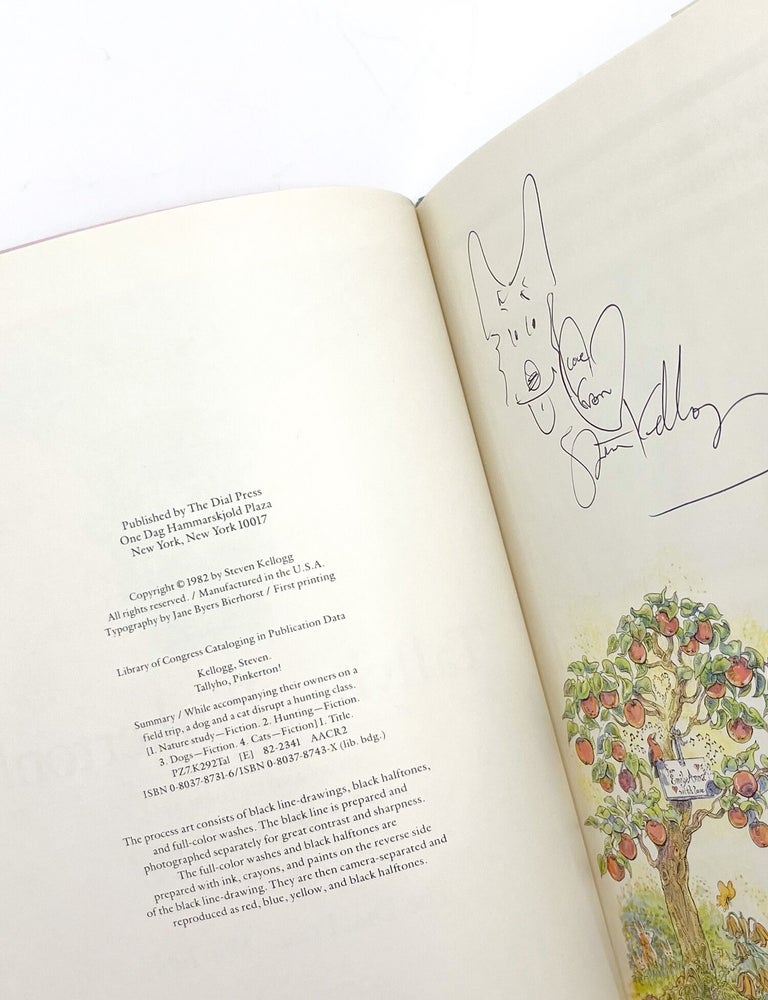 Published by The Dial Press
One Dag Hammarskjold Plaza
New York, New York 10017
Copyright © 1982 by Steven Kellogg
All rights reserved. / Manufactured in the U.S.A.
Typography by Jane Byers Bierhorst / First printing
Library of Congress Cataloging in Publication Data
Kellogg, Steven.
Tallyho, Pinkerton!
Summary / While accompanying their owners on a
field trip, a dog and a cat disrupt a hunting class.
[1. Nature study—Fiction. 2. Hunting—Fiction.
3. Dogs—Fiction. 4. Cats—Fiction] 1. Title.
PZ7.K292Tal [E] 82-2341 AACR2
ISBN 0-8037-8731-6/ISBN 0-8037-8743-X (lib. bdg.)
The process art consists of black line-drawings, black halftones,
and full-color washes. The black line is prepared and
photographed separately for great contrast and sharpness.
The full-color washes and black halftones are
prepared with ink, crayons, and paints on the reverse side
of the black line-drawing. They are then camera-separated and
reproduced as red, blue, yellow, and black halftones.
Love
from
Steven Kellogg
with love